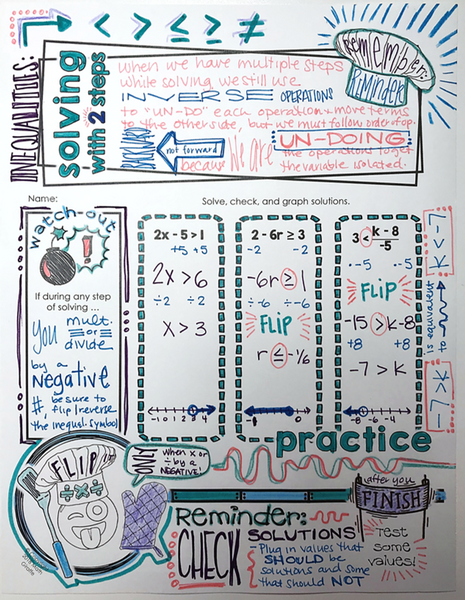 < > ≤ ≥ ≠
INEQUALITIES:
solving
with 2 steps
Remember:
Reminder
when we have multiple steps
while solving we still use
INVERSE OPERATIONS
to "UN-DO" each operation + move terms
to the other side, but we must follow order of op.
BACKWARD
not forward
because We are
UN-DOING
the operations to get
the variable isolated.
Name:
Solve, check, and graph solutions.
watch-out
!
If during any step
of solving ...
you mult.
or
divide
by a
Negative
#, be sure to
flip/reverse
the inequal. symbol
2x - 5 > 1
+5 +5
2x > 6
÷2 ÷2
x > 3
-1 0 1 2 3 4
2 - 6r ≥ 3
-2 -2
-6r ≥ 1
÷-6 ÷-6
FLIP
r ≤ -1/6
-1 0
3 < k - 8
-5
·-5 ·-5
FLIP
-15 > k-8
+8 +8
-7 > k
-8 -6 -4 -2 0
k < -7
is equivalent
to
-7 > k
practice
FLIP
÷×÷
ONLY
when × or
÷ by a
NEGATIVE!
after you
FINISH
Test
some
values!
Reminder:
CHECK
SOLUTIONS
Plug in values that
SHOULD be
solutions and some
that should NOT